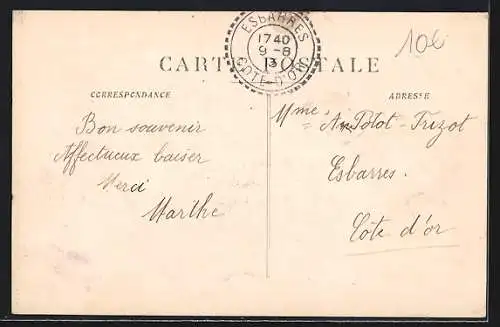 ESBARRES
1740
9-8
13
COTE-D'OR
10€
CARTE POSTALE
CORRESPONDANCE
ADRESSE
Bon souvenir
Affectueux baiser
Merci
Marthe
Mme Potot-Trizot
Esbarres.
Côte d'or